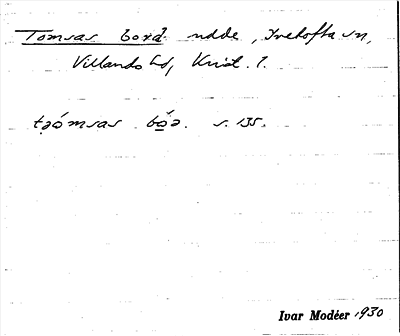 Tomsas bord. udde, Ivetofta sn,
Villands hd, Krist. l.
tǝómsas. bo̱ǝ. s. 135.
Ivar Modéer 1930